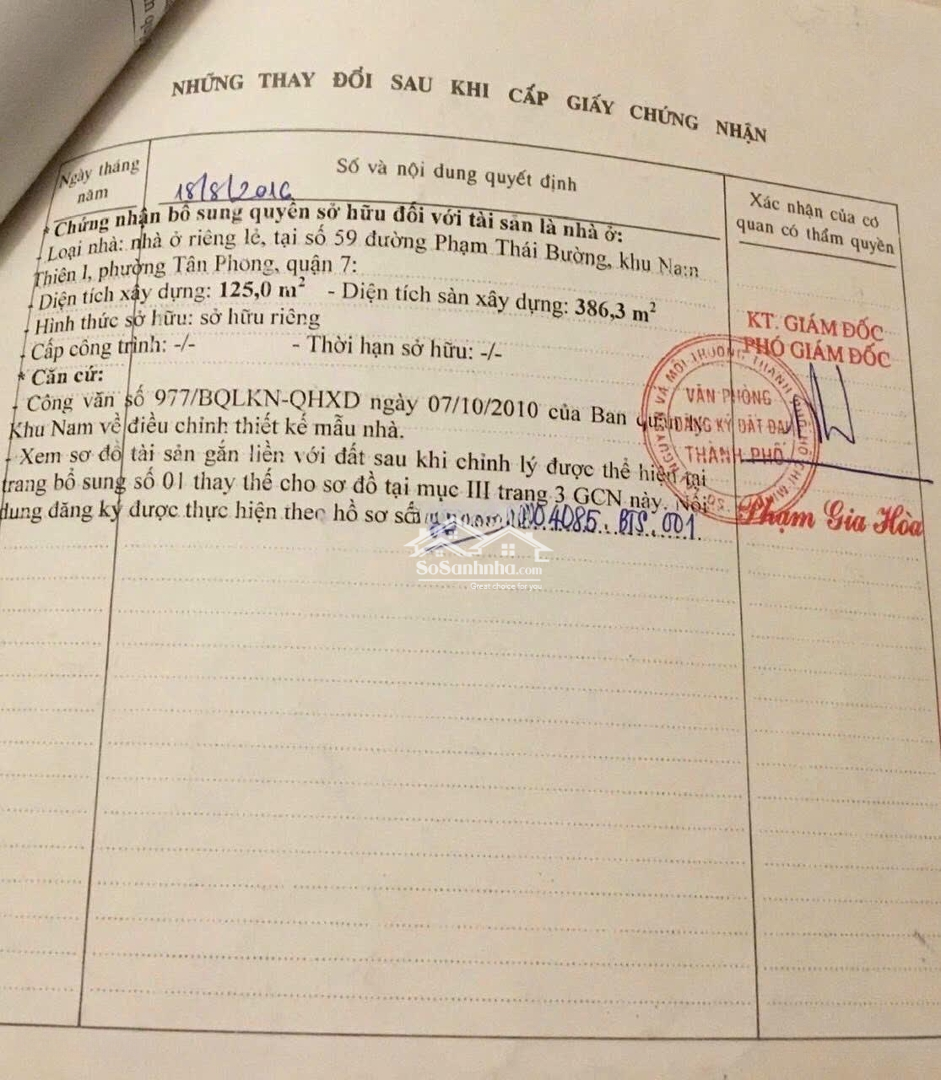 NHỮNG THAY ĐỔI SAU KHI CẤP GIẤY CHỨNG NHẬN
Ngày tháng năm
Số và nội dung quyết định
Xác nhận của cơ quan có thẩm quyền
18/8/2016
* Chứng nhận bổ sung quyền sở hữu đối với tài sản là nhà ở:
- Loại nhà: nhà ở riêng lẻ, tại số 59 đường Phạm Thái Bường, khu Nam
Thiên 1, phường Tân Phong, quận 7:
- Diện tích xây dựng: 125,0 m² - Diện tích sàn xây dựng: 386,3 m²
- Hình thức sở hữu: sở hữu riêng
- Cấp công trình: -/- - Thời hạn sở hữu: -/-
* Căn cứ:
- Công văn số 977/BQLKN-QHXD ngày 07/10/2010 của Ban quản lý
Khu Nam về điều chỉnh thiết kế mẫu nhà.
- Xem sơ đồ tài sản gắn liền với đất sau khi chỉnh lý được thể hiện tại
trang bổ sung số 01 thay thế cho sơ đồ tại mục III trang 3 GCN này. Nội
dung đăng ký được thực hiện theo hồ sơ số 4085.BTS.001.
KT. GIÁM ĐỐC
PHÓ GIÁM ĐỐC
VĂN PHÒNG
ĐĂNG KÝ ĐẤT ĐAI
THÀNH PHỐ
Phạm Gia Hòa
SoSanhnha.com
Great choice for you